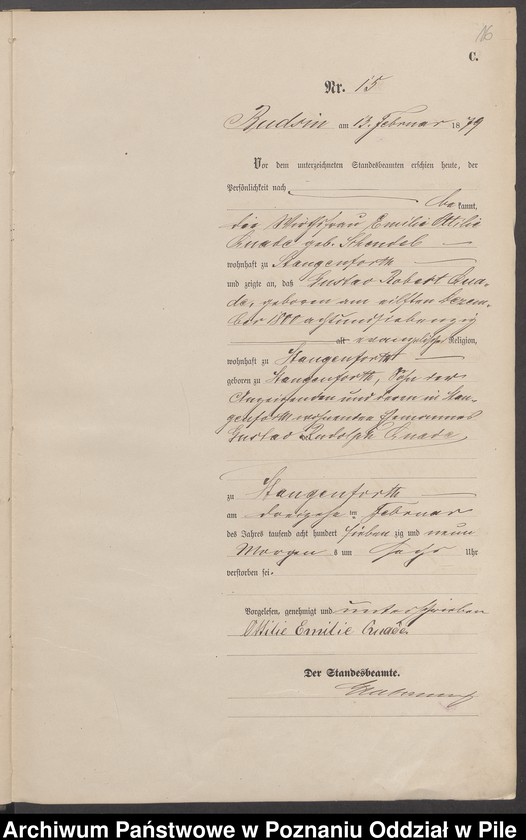 16
C.
Nr. 15
am 13. Februar 1879
Vor dem unterzeichneten Standesbeamten erschien heute, der
Persönlichkeit nach
bekannt,
die Wirthsfrau Emilie Ottilie
Quade geb. Schendel
wohnhaft zu Stangenforth
und zeigte an, daß Gustav Robert Qua-
de, geboren am eilften Dezem-
ber 1800 achtundsiebenzig
alt evangelischer Religion,
wohnhaft zu Stangenforth
geboren zu Stangenforth, Sohn der
Anzeigenden und deren in Stan-
genforth wohnenden Ehemannes
Gustav Rudolph Quade
zu Stangenforth
am ten Februar
des Jahres tausend acht hundert sieben zig und neun
Morgens um sechs Uhr
verstorben sei.
Vorgelesen, genehmigt und unterschrieben
Ottilie Emilie Quade.
Der Standesbeamte.
Archiwum Państwowe w Poznaniu Oddział w Pile